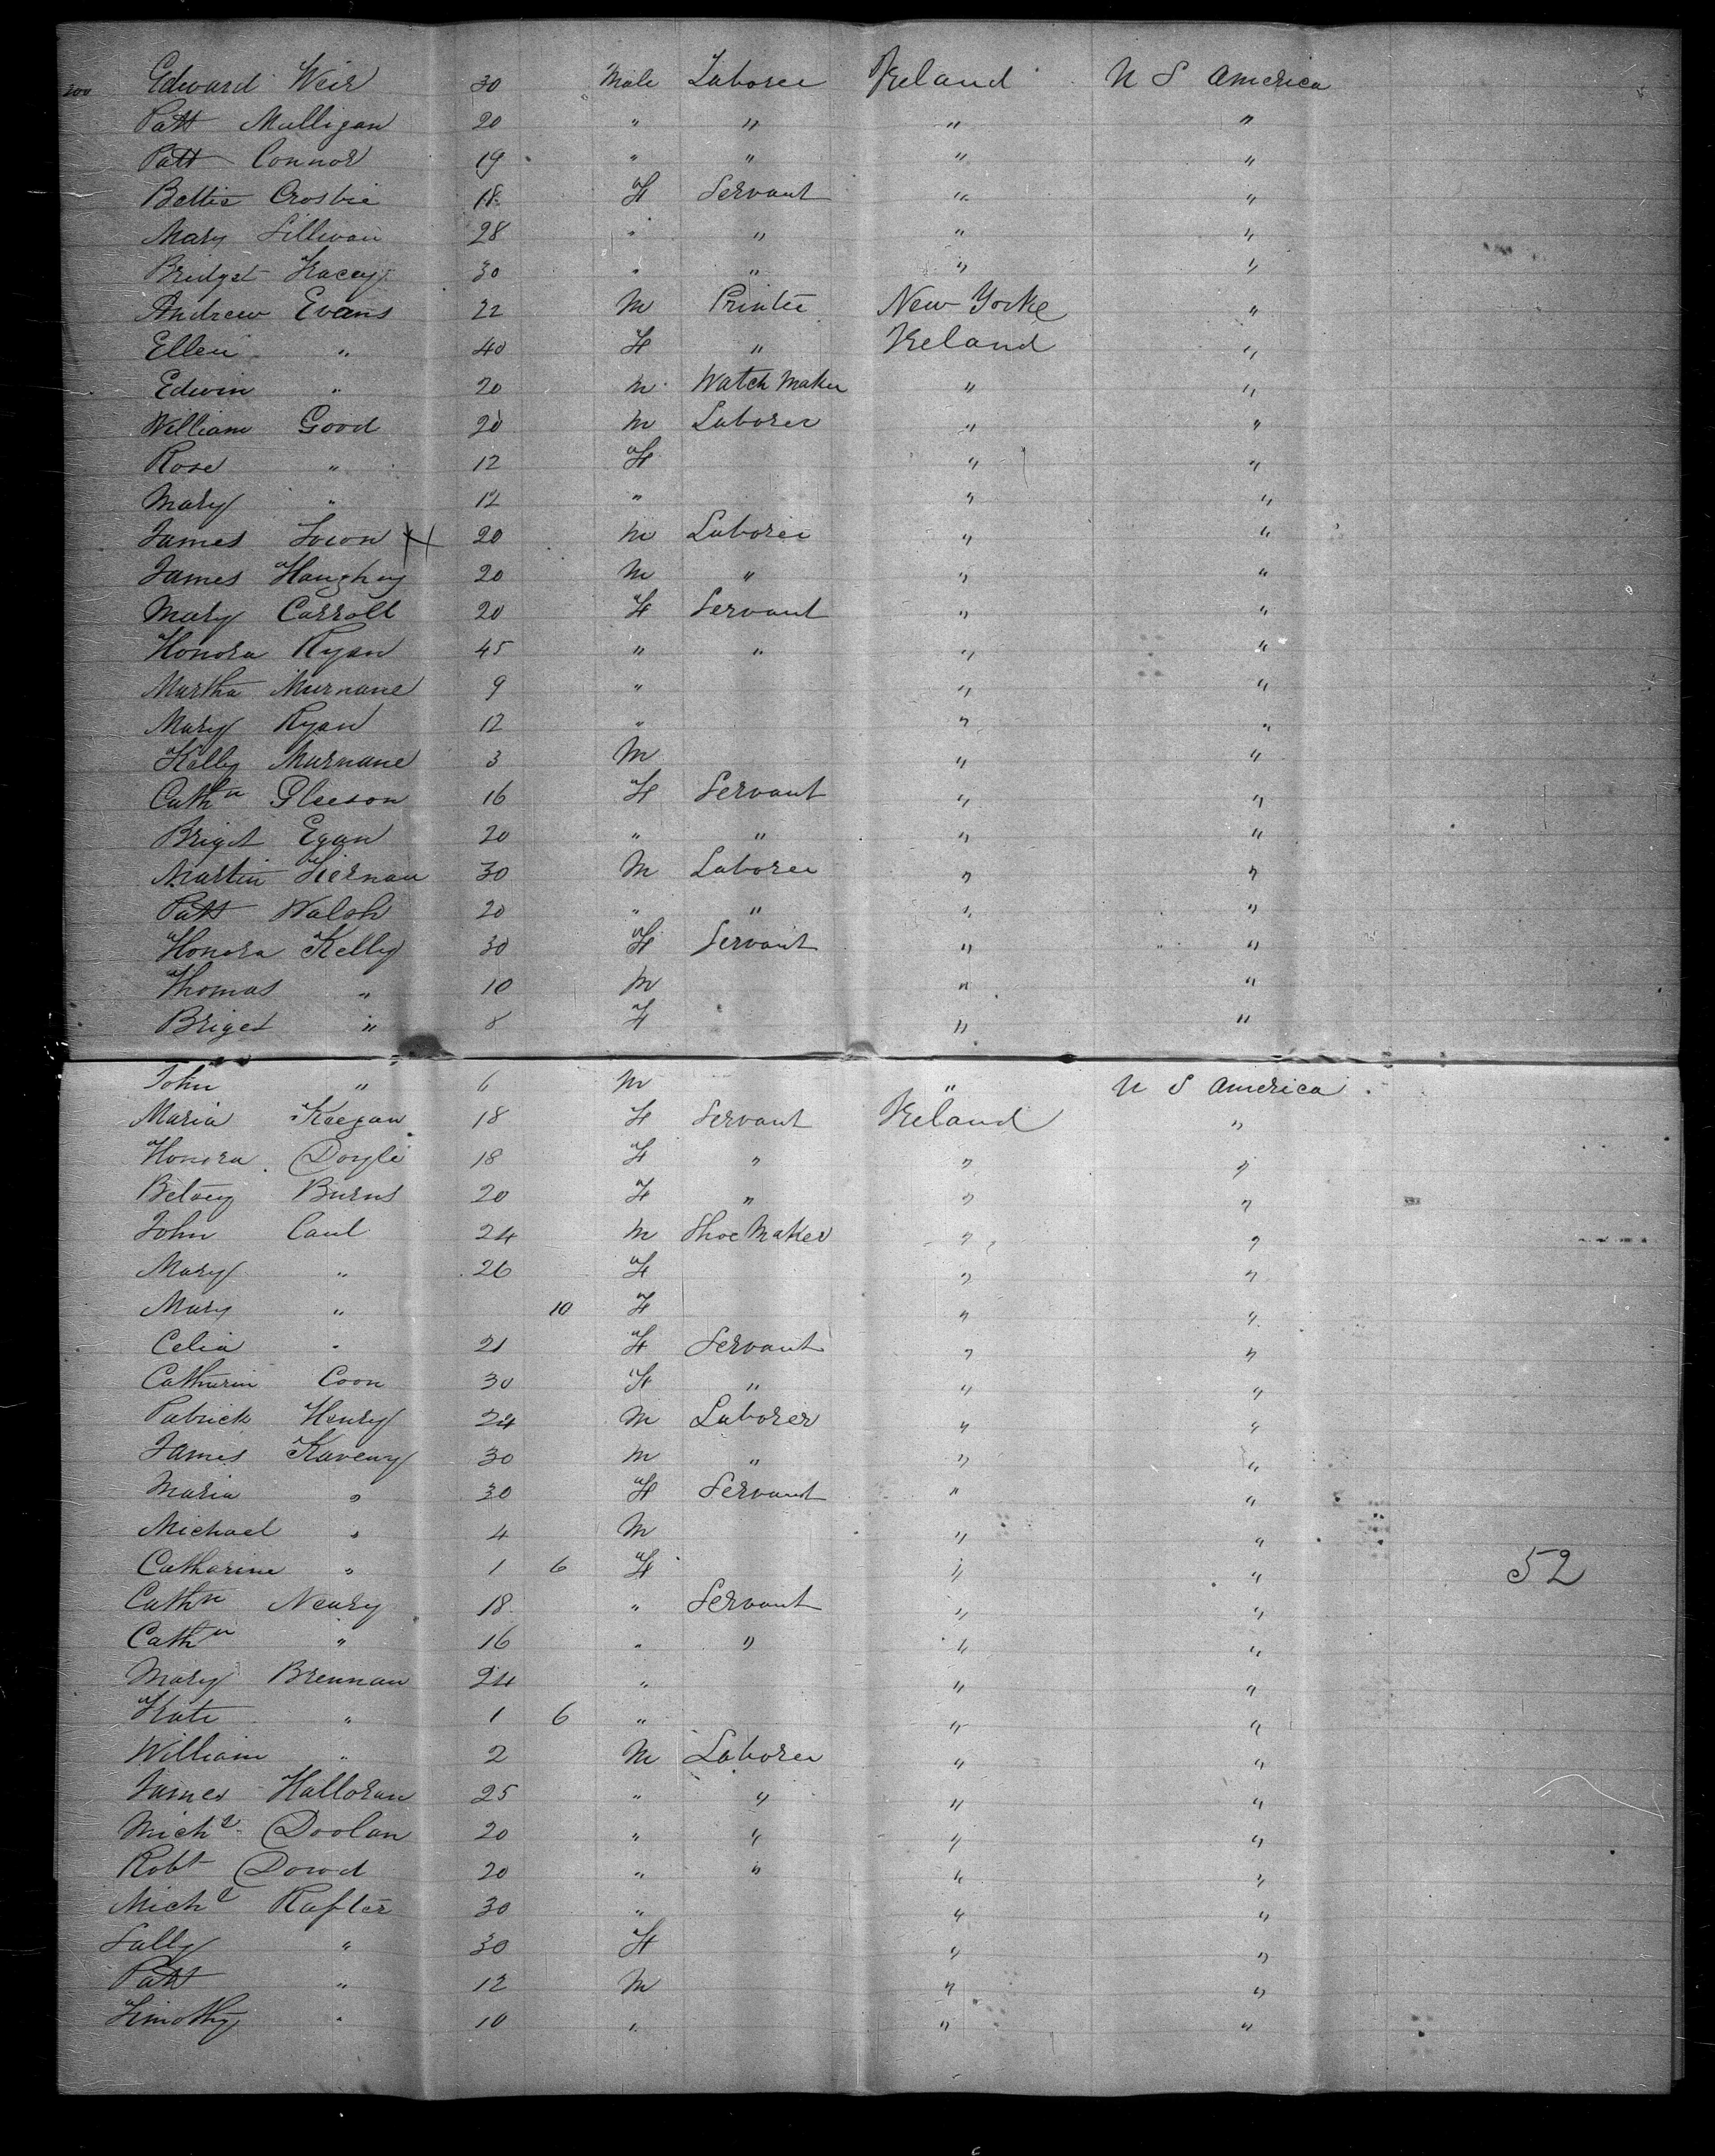 200 Edward Weir 30 Male Laborer Ireland U S America
Patt Mulligan 20 " " " "
Patt Connor 19 " " " "
Bettie Crosbie 18 F Servant " "
Mary Sillivan 28 " " " "
Bridget 30 " " " "
Andrew Evans 22 M Printer New Yorke "
Ellen " 40 F " Ireland "
Edwin " 20 M Watch Maker " "
William Good 20 M Laborer " "
Rose " 12 F " "
Mary " 12 " " "
James 20 M Laborer " "
James Haughey 20 M " " "
Mary Carroll 20 F Servant " "
Honora Ryan 45 " " " "
Martha Murnane 9 " " "
Mary Ryan 12 " " "
Murnane 3 M " "
Cathn Gleeson 16 F Servant " "
Briget Egan 20 " " " "
Martin 30 M Laborer " "
Patt Walsh 20 " " " "
Honora Kelly 30 F Servant " "
Thomas " 10 M " "
Briget " 8 F " "
John " 6 M " U S America
Maria Keegan 18 F Servant Ireland "
Honora Doyle 18 F " " "
Betsey Burns 20 F " " "
John Caul 24 M Shoe Maker " "
Mary " 26 F " "
Mary " 10 F " "
Celia " 21 F Servant " "
Catherin Coon 30 F " " "
Patrick Henry 24 M Laborer " "
James Kaveny 30 M " " "
Maria " 30 F Servant " "
Michael " 4 M " "
Catharine " 1 6 F " " 52
Cathn Neary 18 " Servant " "
Cathn " 16 " " " "
Mary Brennan 24 " " "
Kate " 1 6 " " "
William " 2 M Laborer " "
James Halloran 25 " " " "
Michl Doolan 20 " " " "
Robt Dowd 20 " " " "
Michl Rafter 30 " " "
Sally " 30 F " "
Patt " 12 M " "
Timothy " 10 " " "